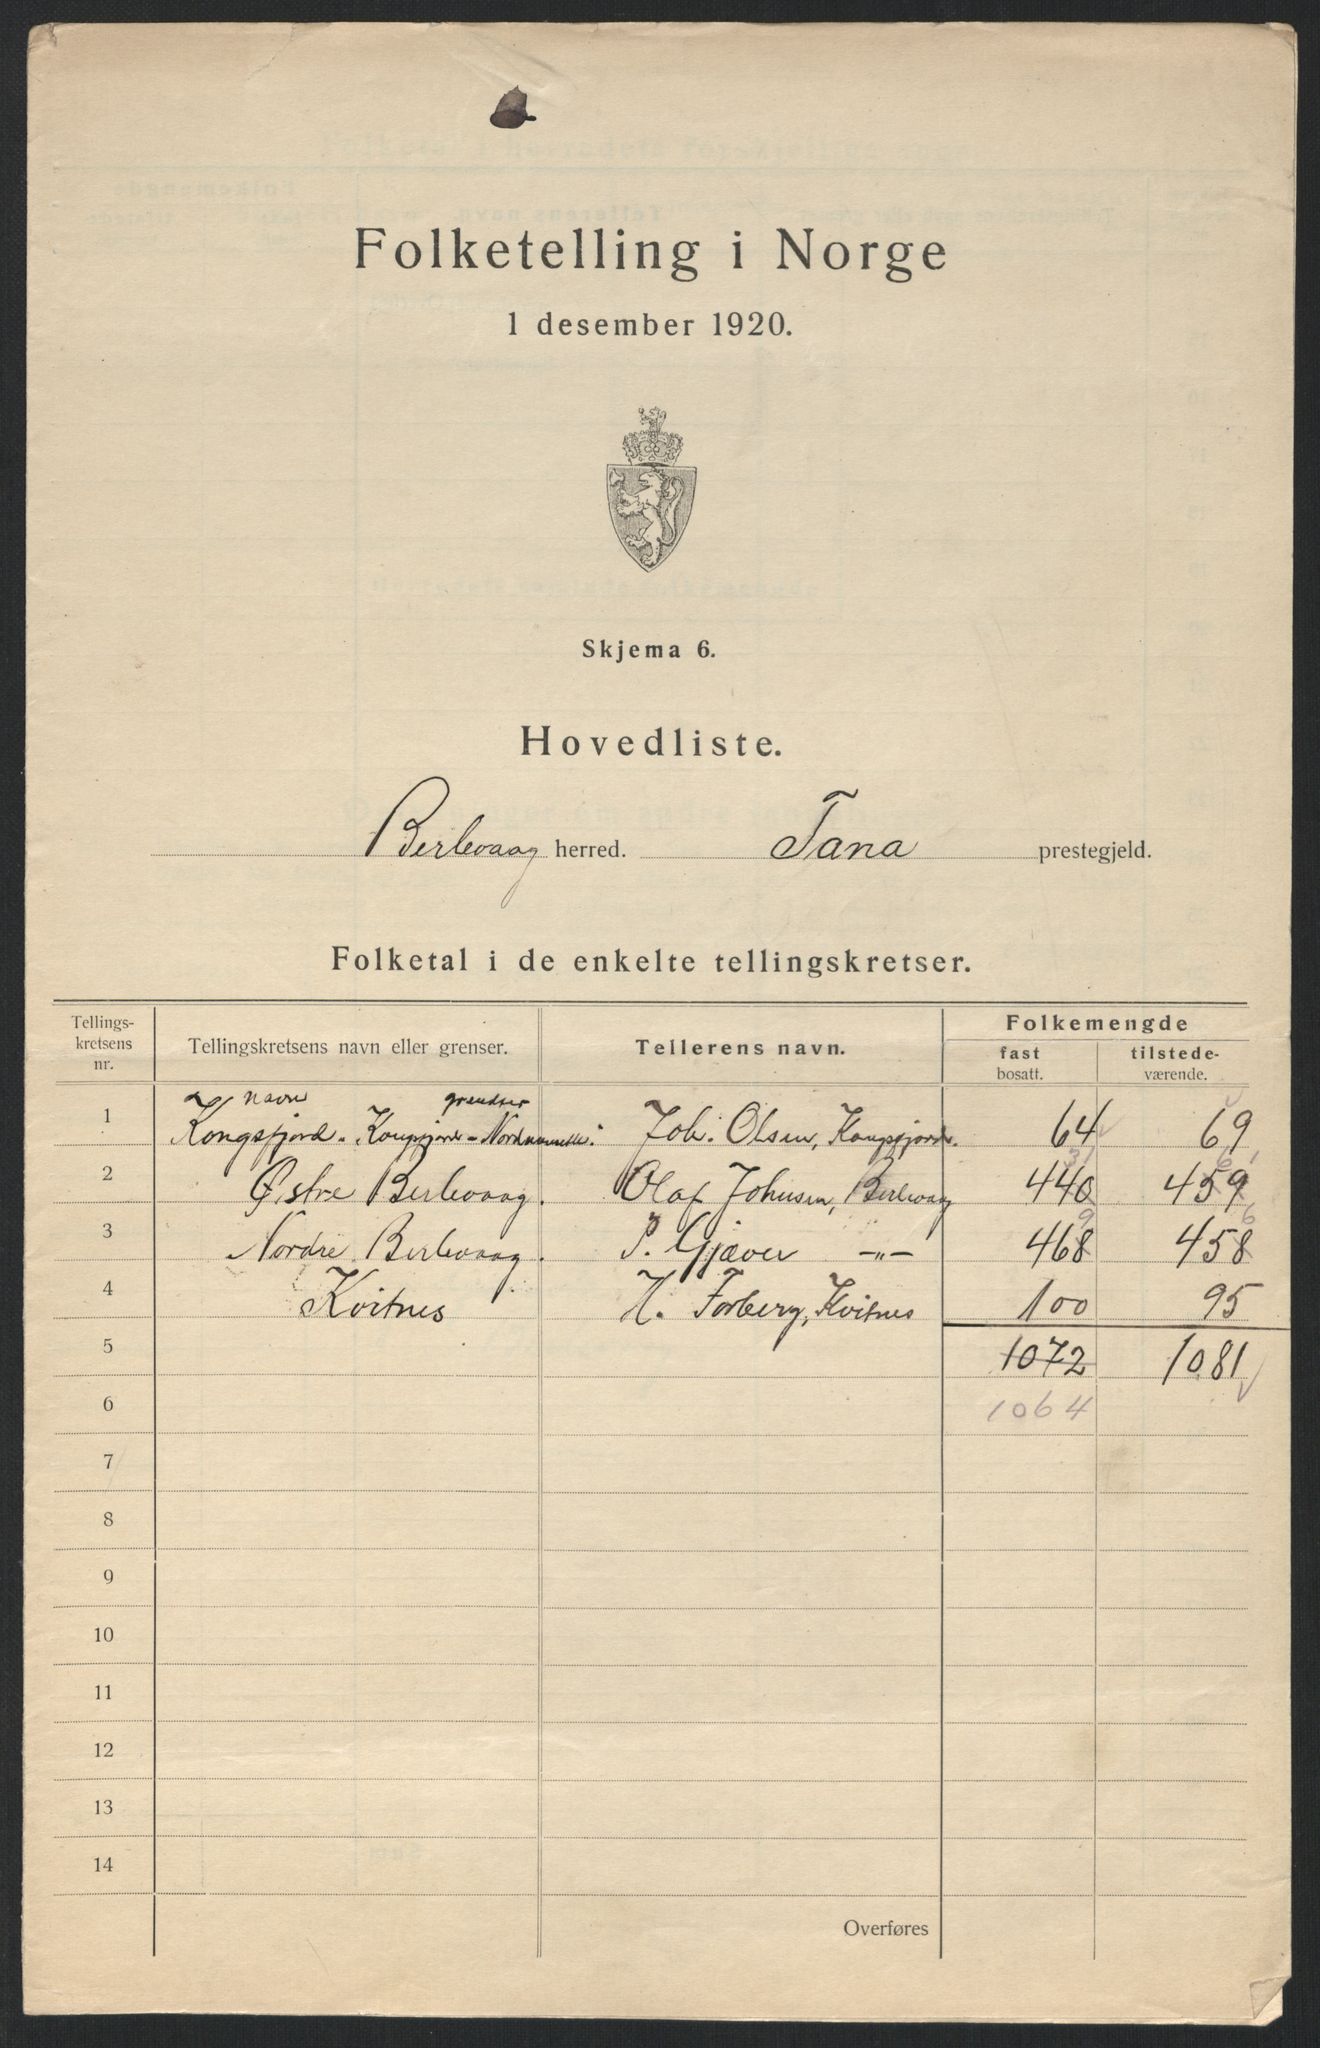 Folketelling i Norge
1 desember 1920.
Skjema 6.
Hovedliste.
Berlevaag herred. Tana prestegjeld.
Folketal i de enkelte tellingskretser.
Tellings-kretsens nr. Tellingskretsens navn eller grenser. Tellerens navn. Folkemengde
fast bosatt. tilstede-værende.
navn grendser
1 Kongsfjord. Joh. Olsen, Kongsfjord. 64 69
31 61
2 Østre Berlevaag. Olaf Johnsen, Berlevaag 440 459
9 6
3 Nordre Berlevaag. P. Gjæver -"- 468 458
4 Kvitnes H. Forberg, Kvitnes 100 95
5 1072 1081
6 1064
7
8
9
10
11
12
13
14
Overføres